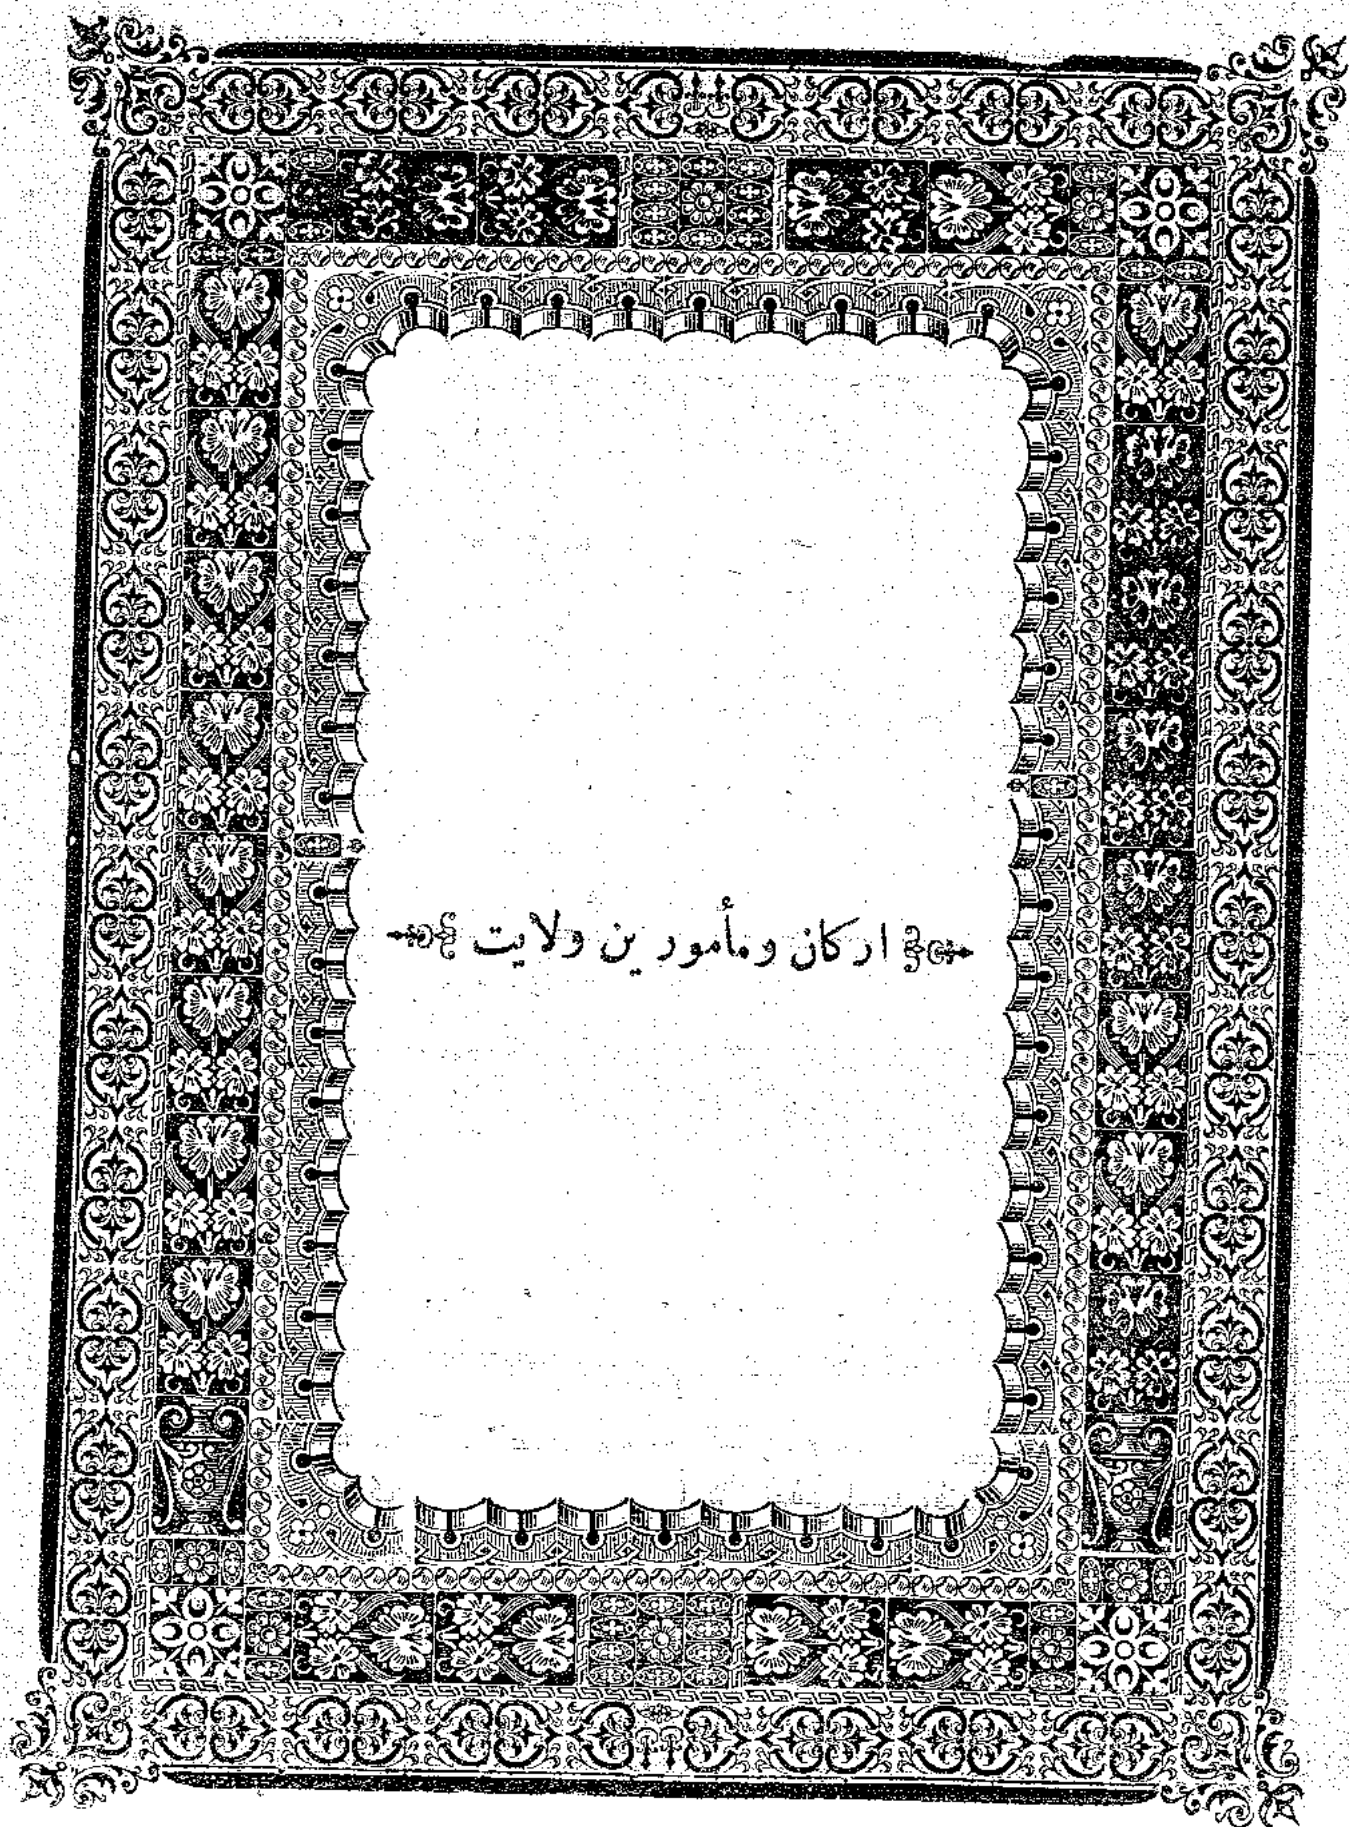 ارکان ومأمورین ولایت